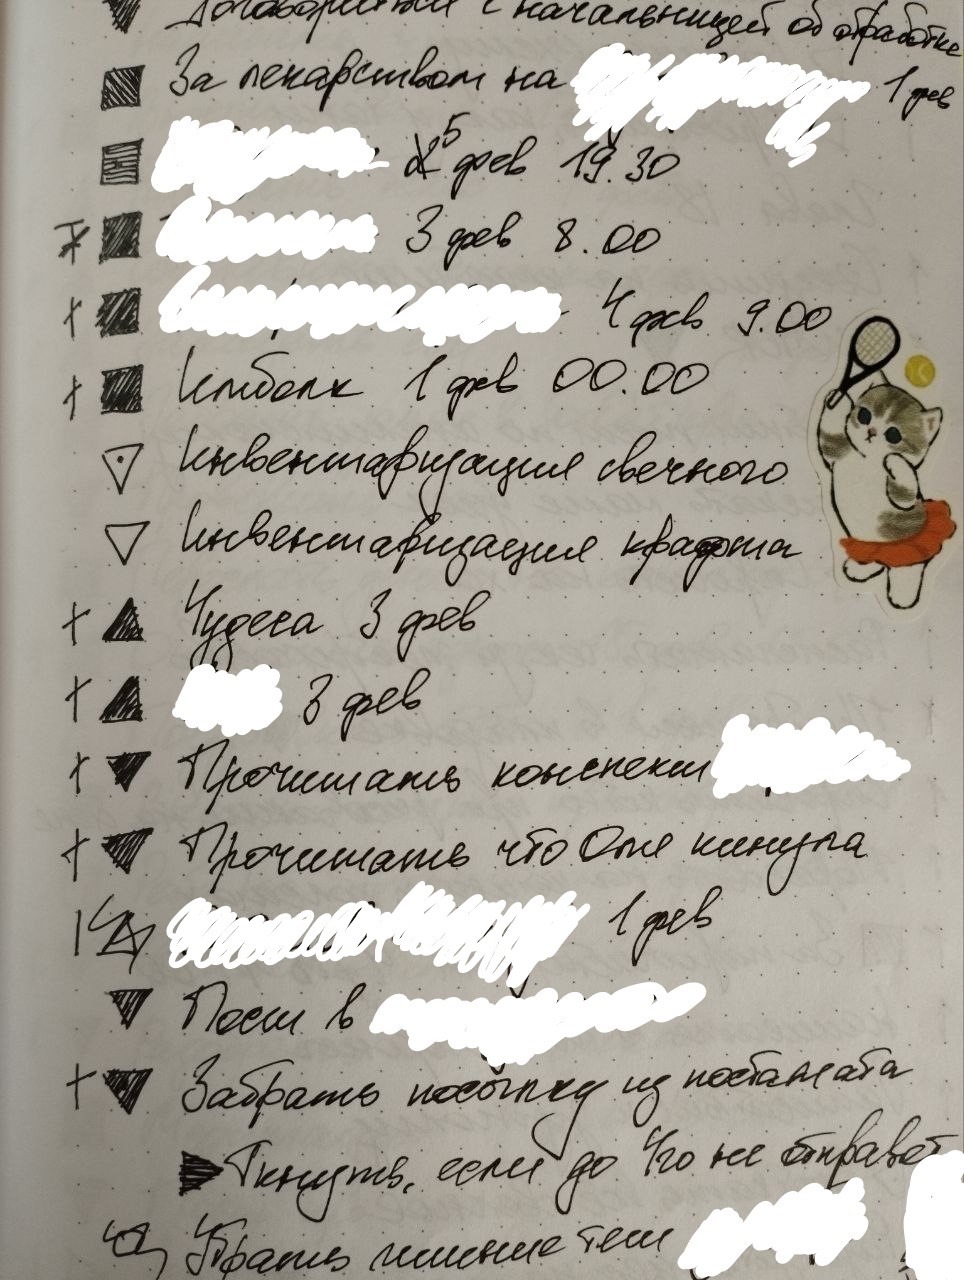 Договориться с начальницей об отработке
За лекарством на 1 фев
5 фев 19.30
3 фев 8.00
4 фев 9.00
Имболк 1 фев 00.00
Инвентаризация свечного
Инвентаризация крафта
Чудеса 3 фев
3 фев
Прочитать конспект
Прочитать что Оля кинула
1 фев
Пост в
Забрать посылку из постамата
Ткнуть, если до 4го не отправят
Убрать лишние теги